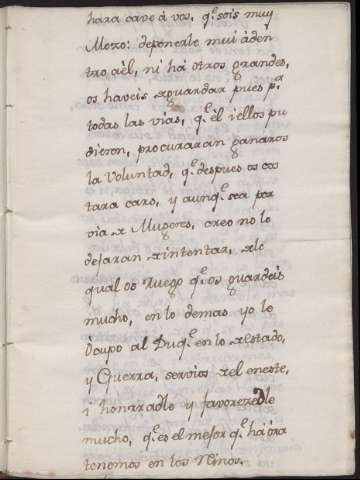 hara cave à vos, q.e sois muy
Mozo: deponerle mui àden
tro, à èl, ni hà otros grandes,
os haveis xguardar pues p.r
todas las vias, q.e èl i ellos pu
dieren, procuraràn ganaros
la Voluntad, q.e despues os cos
tara caro, y aunq.e sea por
via x Mugeres, creo no lo
dejaran xintentar, xlo
qual os Ruego q.e os guardeis
mucho, en lo demas yo le
Ocupo al Duq.e en lo xestado,
y Guerra, servios xel en este,
i honrradle y favorezedle
mucho, q.e es el mejor q.e hà óra
tenemos en los Reinos.